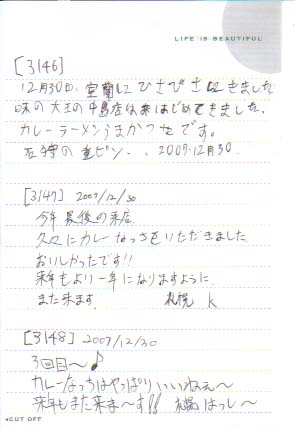 LIFE IS BEAUTIFUL
[3146]
12月30日、室蘭にひさびさにきました
味の大王の中島店は来はじめてきました、
カレーラーメンうまかったです。
左狩の 2007.12.30.
[3147] 2007/12/30
今年最後の来店
久々にカレなっさをいただきました
おいしかったです!!
来年もより一年になりますように
また来ます. 札幌 K
[3148] 2007/12/30
3回目〜♪
カレーなっちはやっぱりいいねぇ〜
来年もまた来ま〜す!! はっし〜
◂CUT OFF